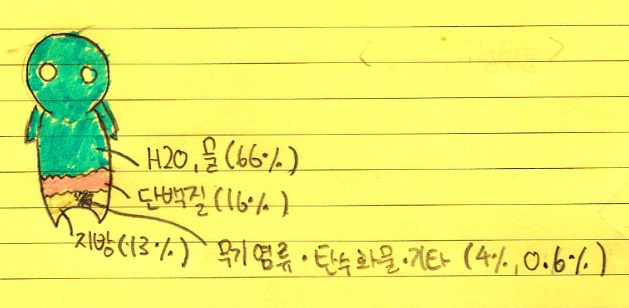 H2O, 물 (66%)
단백질 (16%)
지방 (13%)
무기염류·탄수화물·기타 (4%, 0.6%)